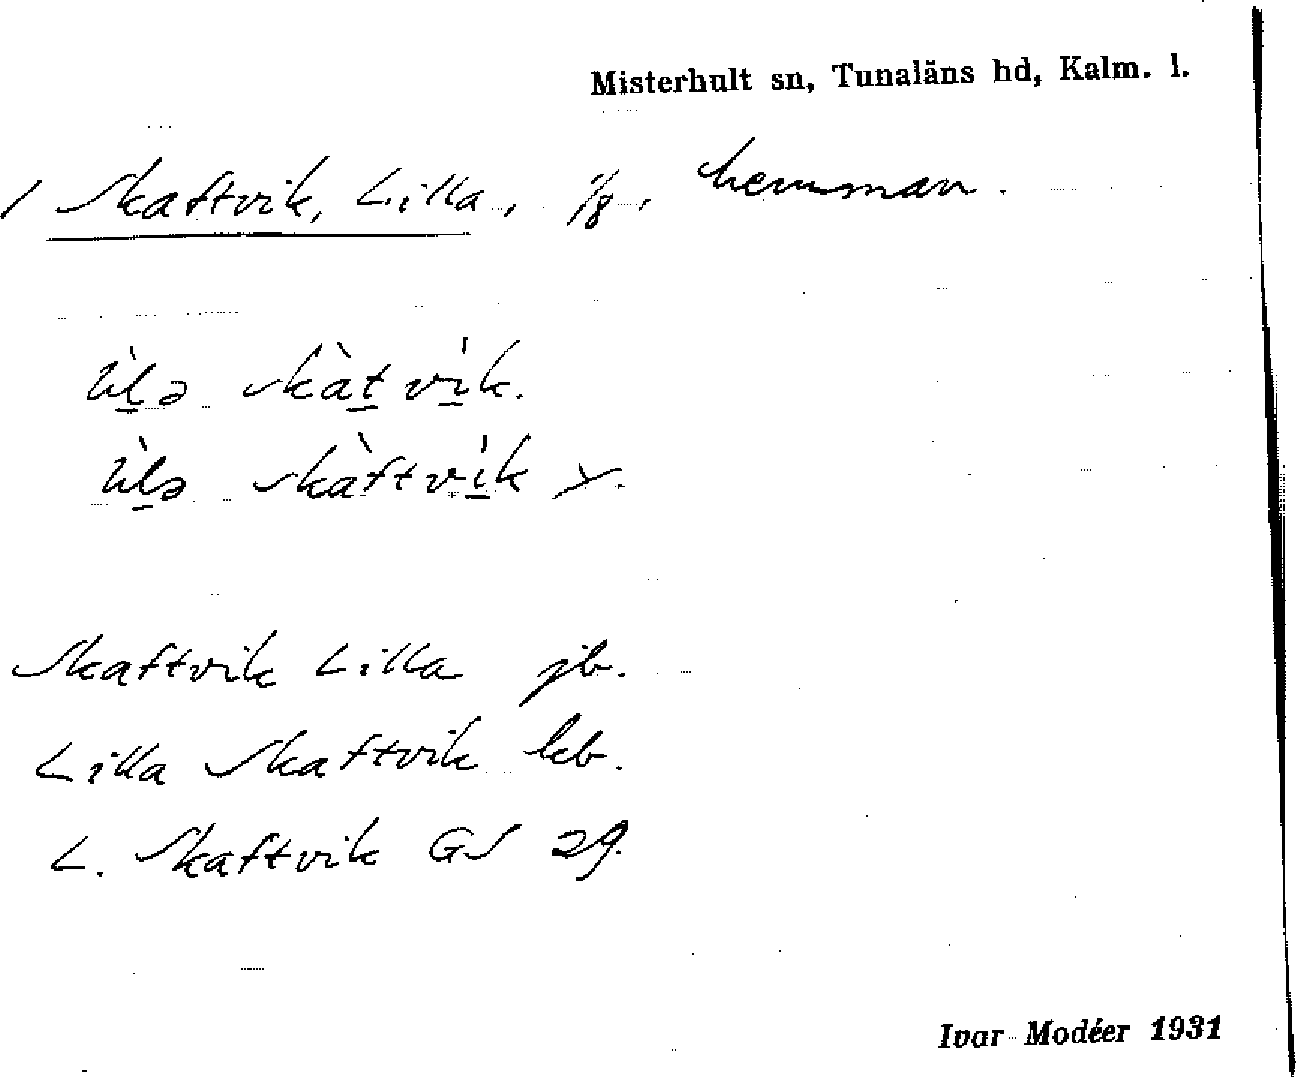 Misterhult sn, Tunaläns hd, Kalm. l.
/ Skaftvik, Lilla, 1/8, hemman.
skàt vìk.
skàftvìk y.
Skaftvik Lilla jb.
Lilla Skaftvik kb.
L. Skaftvik GS 29.
Ivar Modéer 1931